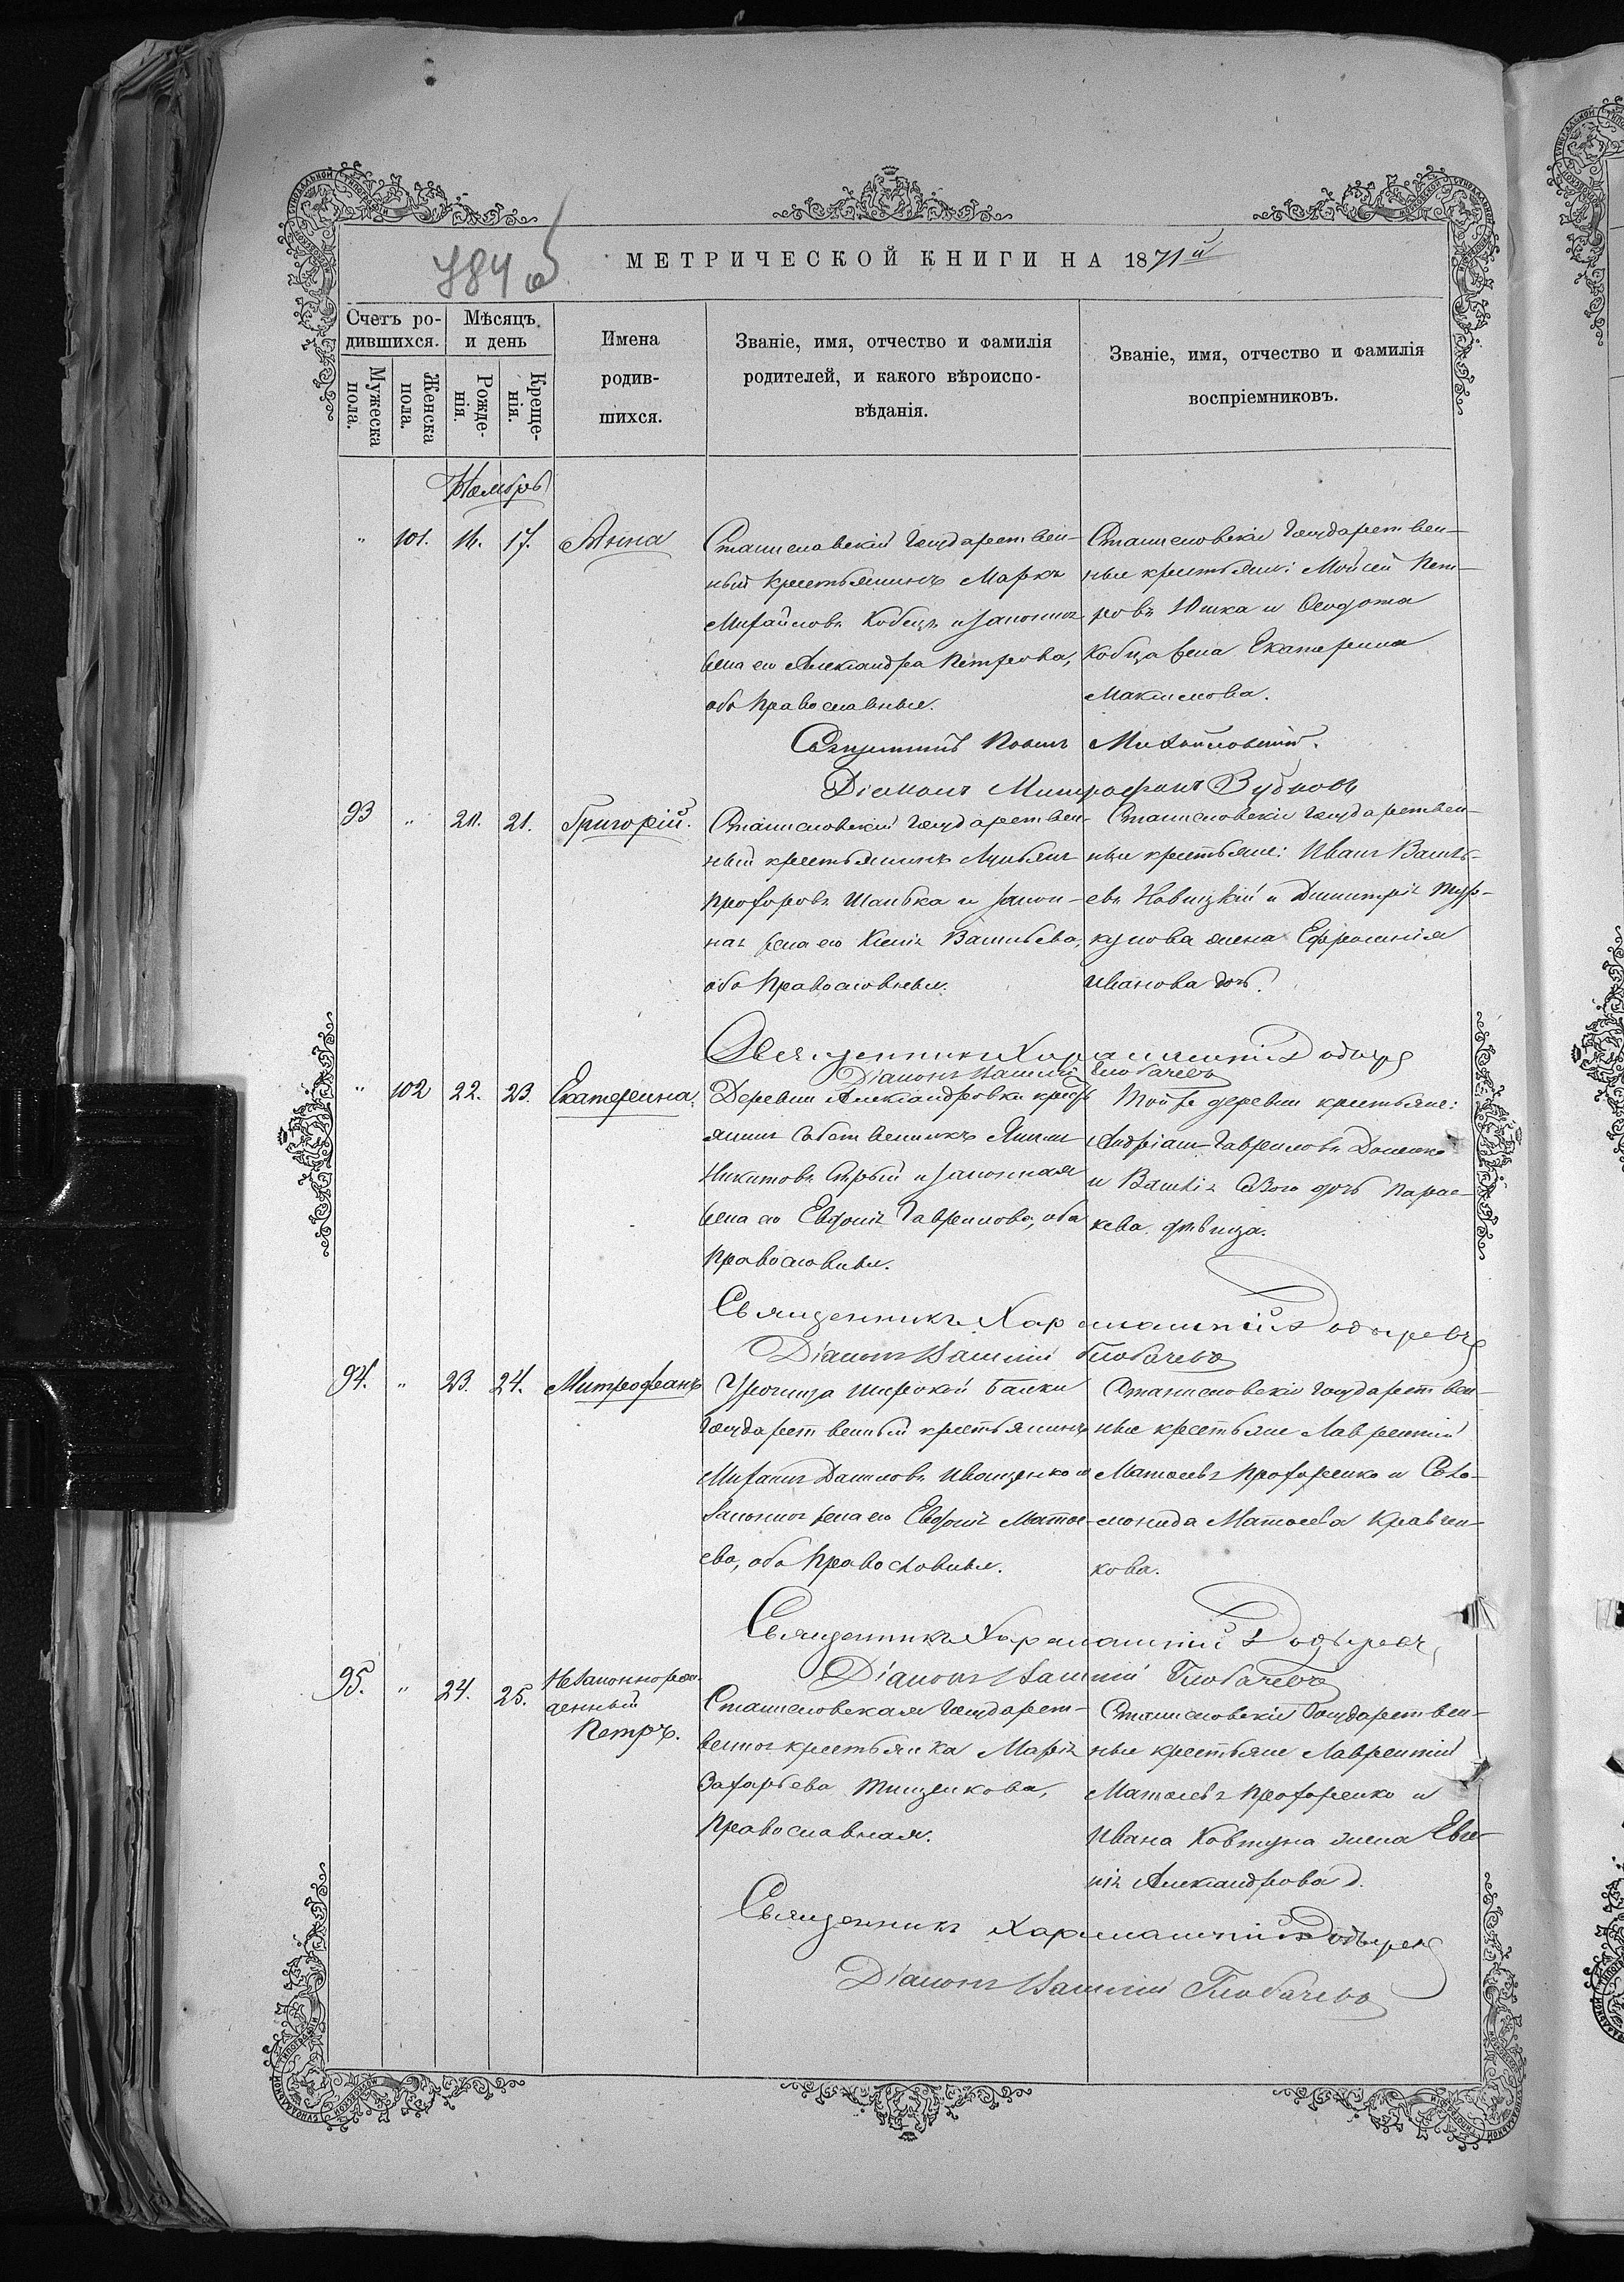 784 об
МЕТРИЧЕСКОЙ КНИГИ НА 1871й
Счетъ ро-
дившихся.
Мужеска пола.
Женска пола.
Мѣсяцъ и день
Рожде-
нія.
Креще-
нія.
Имена
родив-
шихся.
Званіе, имя, отчество и фамилія
родителей, и какого вѣроиспо-
вѣданія.
Званіе, имя, отчество и фамилія
воспріемниковъ.
Ноябрь
" 101. 17. Анна
Станиславскій Государствен-
ный крестьянинъ Маркъ
Михайловъ Кобецъ и законная
жена его Александра Петрова,
оба православные.
Станиславскіе Государствен-
ные крестьяне: Мойсей Пет-
ровъ Юшка и Ѳеодота
Кобца жена Екатерина
Максимова.
Священникъ Михайловскій.
Діаконъ Митрофанъ Зубковъ
93 " 21. Григорій.
Станиславскій Государствен-
ный крестьянинъ
Прохоровъ и закон-
ная жена его Ксенія Васильева,
оба православные.
Станиславскіе Государствен-
ные крестьяне: Иванъ Василь-
евъ Новицкій и Димитрія Тур-
кулова жена Ефросинія
Иванова дочь.
Священникъ Харалампій
Діаконъ Василій Глобачевъ
" 102 22. 23. Екатерина.
Деревни Александровки крестья-
янинъ собственникъ
Никитовъ и законная
жена его Евдокія Гаврилова, оба
православные.
Той же деревни крестьяне:
Андріанъ Гавриловъ
и Василія дочь Парас-
кева девица.
Священникъ Харалампій
Діаконъ Василій Глобачевъ
94. " 23. 24. Митрофанъ
Урочища Широкой Балки
Государственный крестьянинъ
Михаилъ Даниловъ Иващенко и
законная жена его Евдокія Матѳе-
ева, оба православные.
Станиславскіе Государствен-
ные крестьяне Лаврентій
Матѳеевъ Прохоренко и Соло-
монида Матѳеева Кравчен-
кова.
Священникъ Харалампій
Діаконъ Василій Глобачевъ
95. " 24. 25. Незаконнорож-
денный
Петръ.
Станиславская Государст-
венная крестьянка Марія
Захарьева Тищенкова,
православная.
Станиславскіе Государствен-
ные крестьяне Лаврентій
Матѳеевъ Прохоренко и
Ивана Ковтуна жена Евге-
нія Александрова д.
Священникъ Харалампій
Діаконъ Василій Глобачевъ